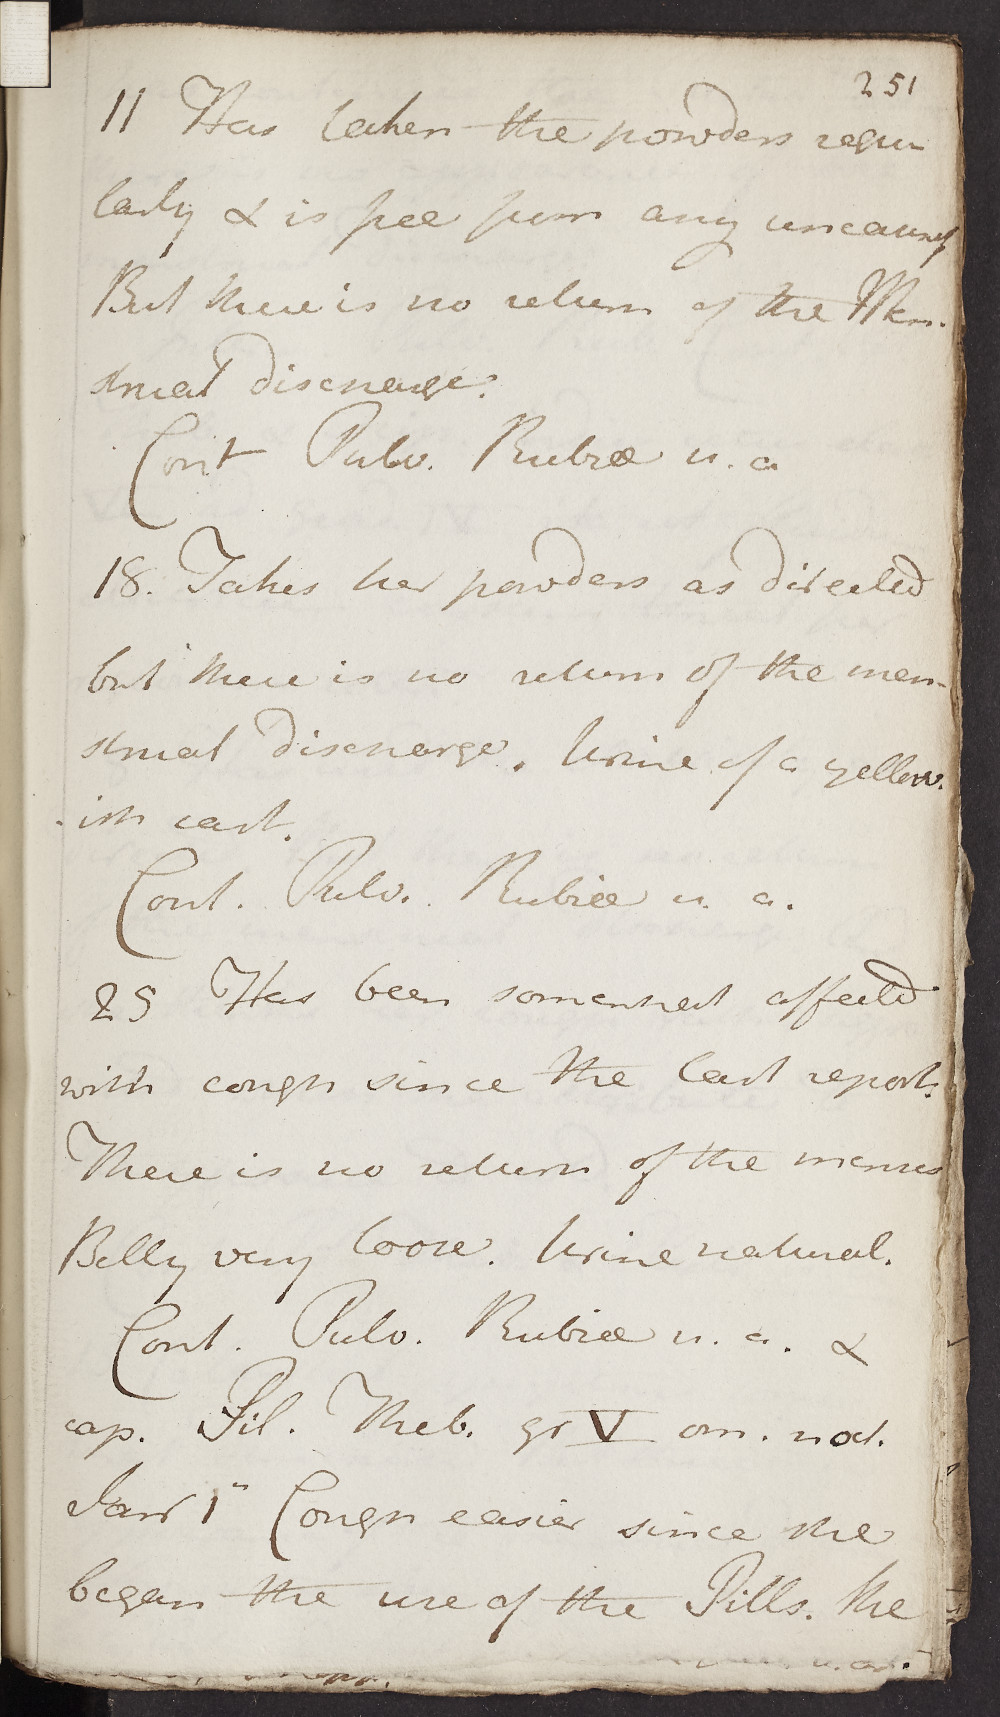 251
11 Has taken the powders regu
larly & is free from any uneasiness
But there is no return of the Men-
strual discharge.
Cont Pulv. Rubiæ u. a
18. Takes her powders as directed
but there is no return of the men-
strual discharge. Urine of a yellow-
ish cast.
Cont. Pulv. Rubiæ u. a.
25 Has been somewhat affected
with cough since the last report.
There is no return of the menses
Belly very loose. Urine natural.
Cont. Pulv. Rubiæ u. a. &
cap. Pil. Theb. gr V om. noct.
Janr 1st Cough easier since she
began the use of the Pills. The